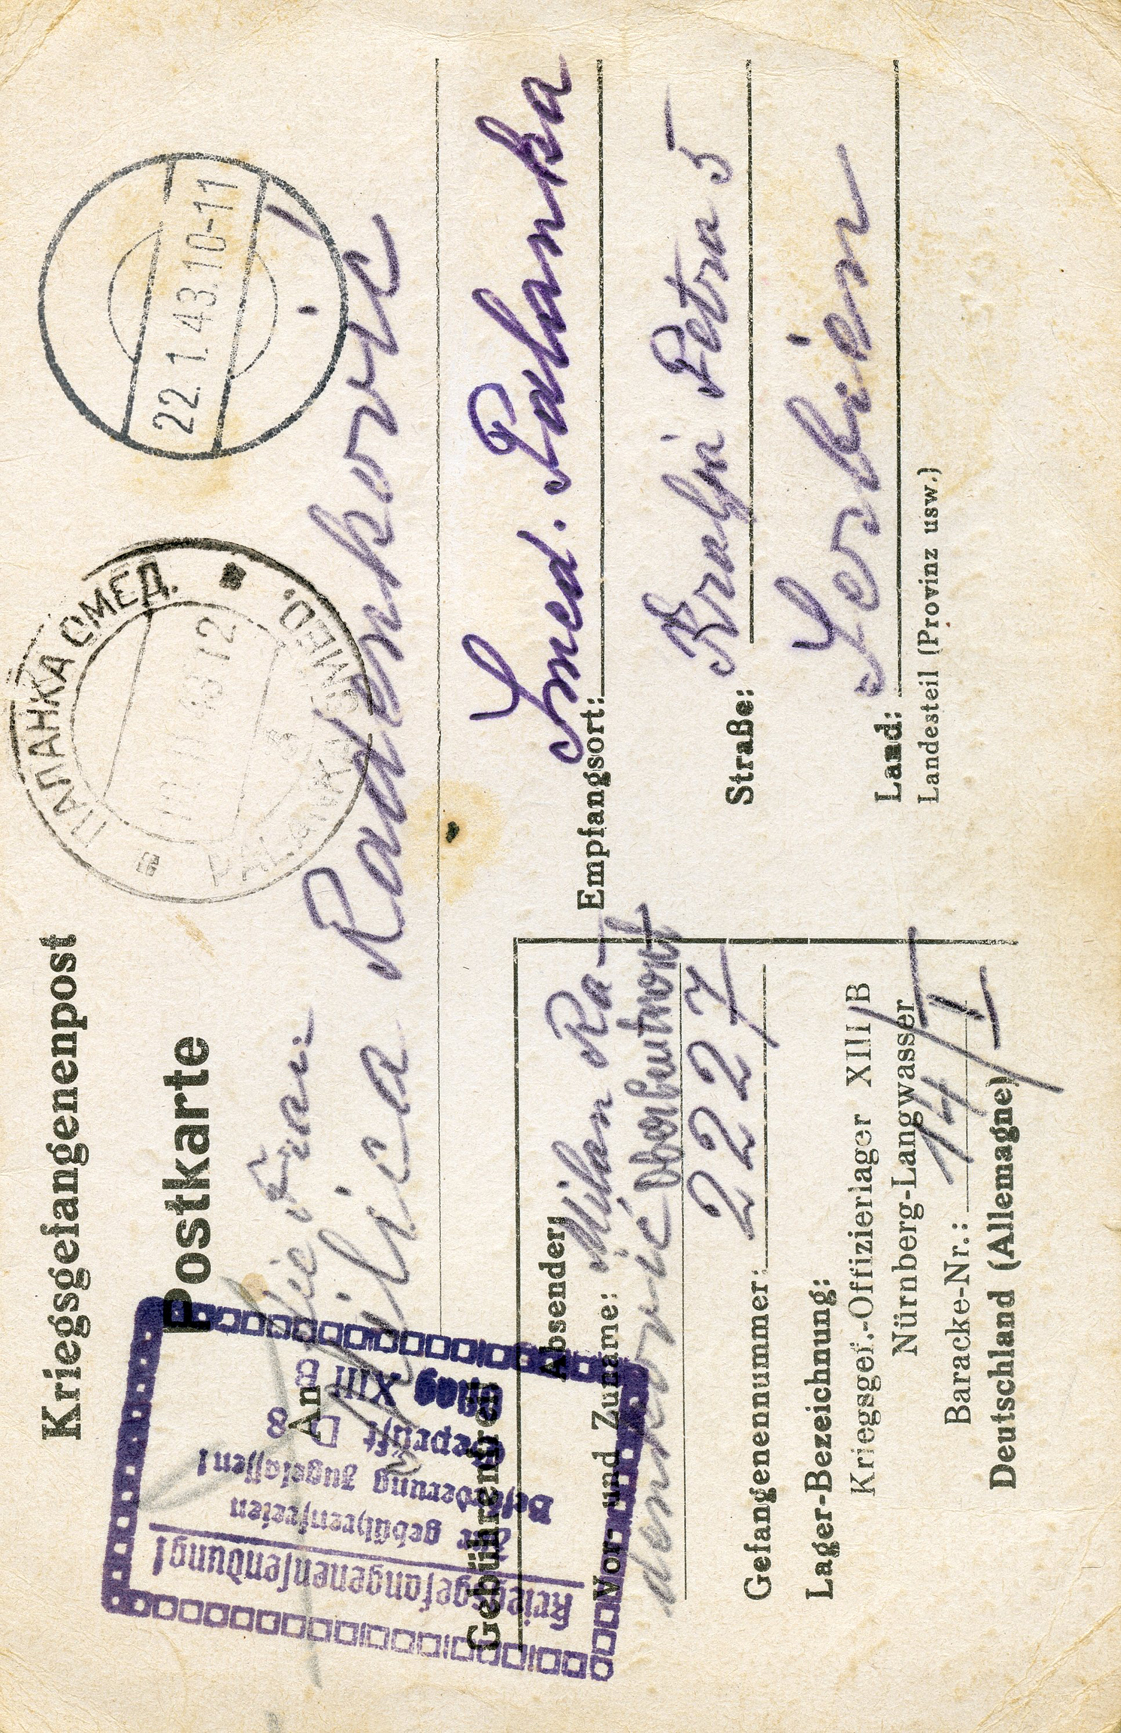 Kriegsgefangenenpost
Postkarte
22.1.43.10-11
ПАЛАНКА СМЕД.
PALANKA SMED.
An die Frau
Milica Radenković
Gebührenfrei
Kriegsgefangenensendung!
Zur gebührenfreien
Beförderung zugelassen!
Geprüft D 8
Oflag XIII B
Empfangsort: Smed. Palanka
Straße: Kralja Petra 5
Land: Serbien
Landesteil (Provinz usw.)
Absender:
Vor- und Zuname: Milan Ra-
denković
Gefangenennummer: 2227
Lager-Bezeichnung:
Kriegsgef.-Offizierlager XIII B
Nürnberg-Langwasser
Baracke-Nr.: 14/I
Deutschland (Allemagne)